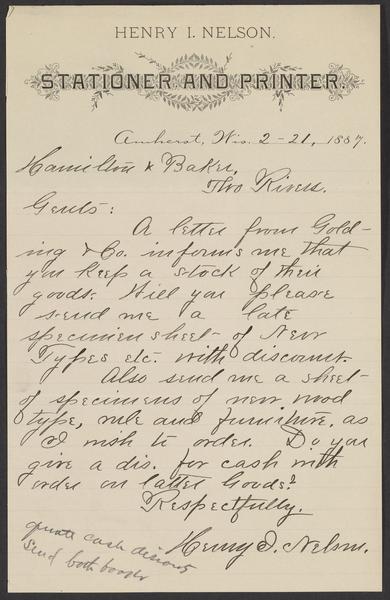 HENRY I. NELSON.
STATIONER AND PRINTER.
Amherst, Wis. 2-21, 1887.
Hamilton & Baker,
Two Rivers.
Gents:
A letter from Gold-
ing & Co. informs me that
you keep a stock of their
goods: Will you please
send me a late
specimen sheet of New
Types etc. with discount.
Also send me a sheet
of specimens of new wood
type, rule and furniture, as
I wish to order. Do you
give a dis. for cash with
order on latter Goods?
Respectfully.
Henry I. Nelson.
quote cash discount
send both books